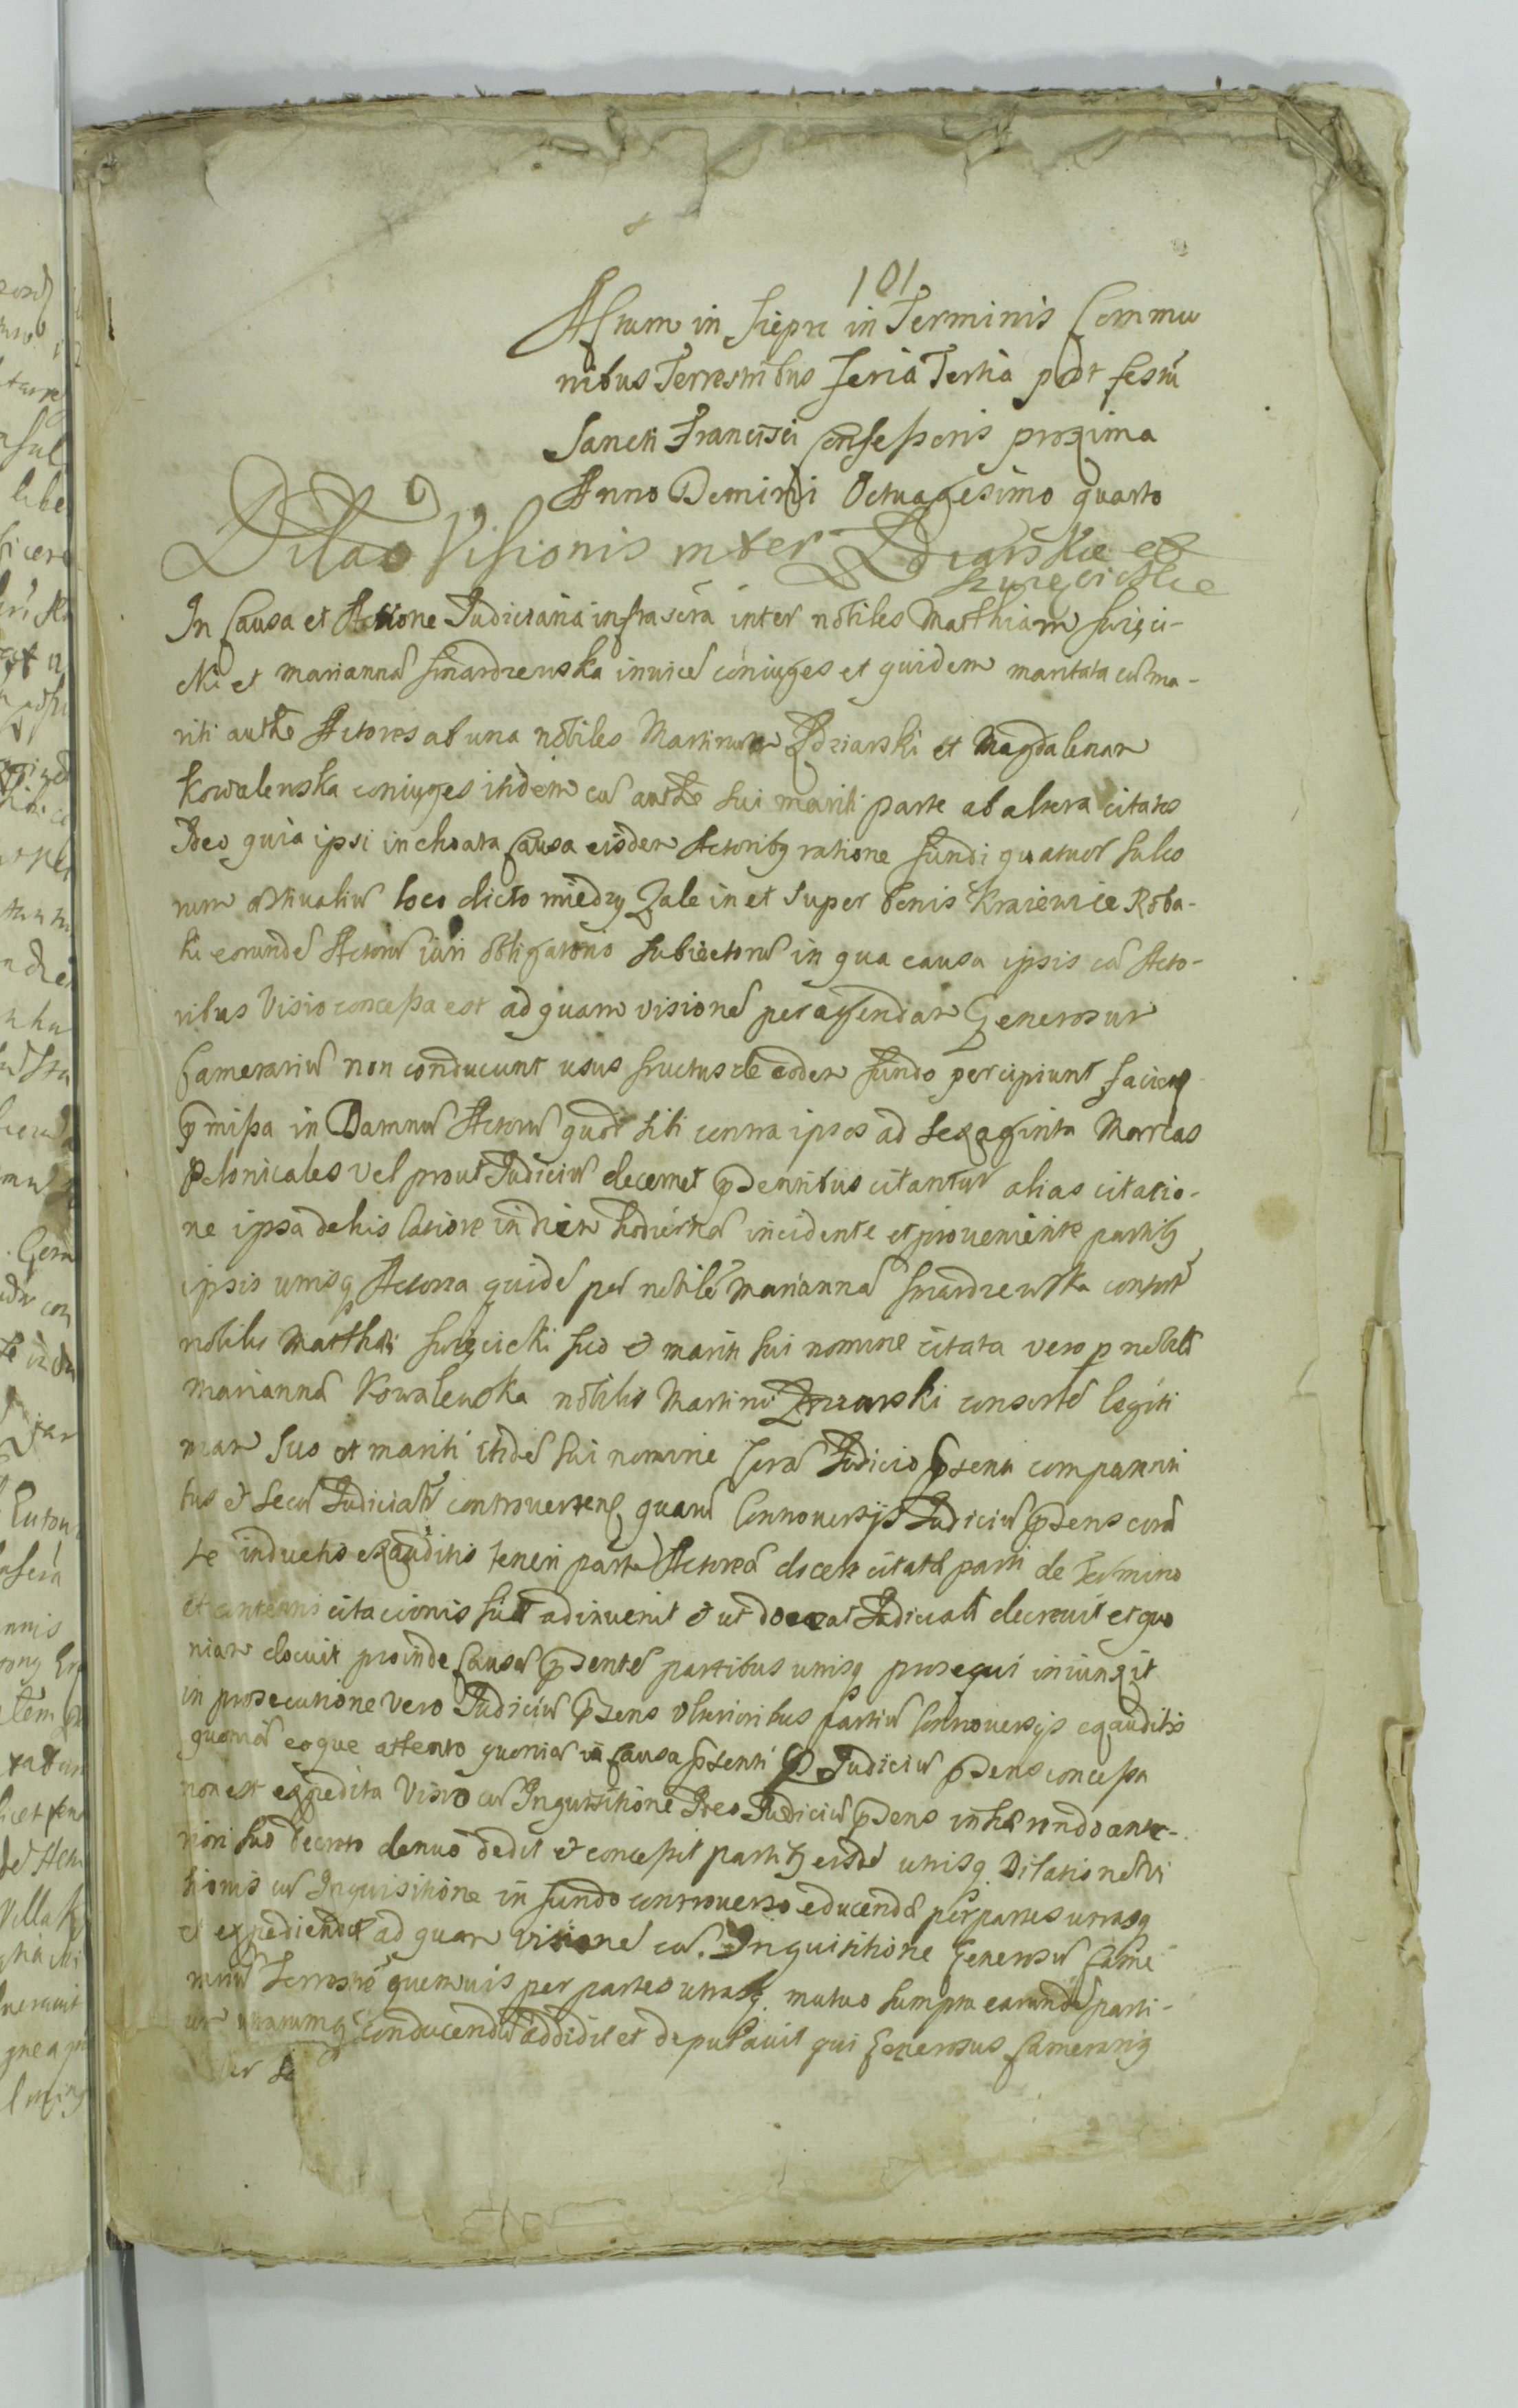 101
Actum in Siepre in Terminis Commu
nibus Terrestribus Feria Tertia post festū
Sancti Francisci Confessoris proxima
Anno Domini Octuagesimo quarto
Dilao Visionis inter Zdziarskie et
In Causa et Actione Judiciaria infrascra inter nobiles Matthiam Swięci-
cki et mariannā Smardzewska invicē coniuges et quidem maritata cū ma-
riti authe Actores ab una nobiles Martinum Zdziarski et Magdalenam
Kowalewska coniuges itidem cū authe sui mariti parte ab altera citatos
Ideo quia ipsi inchoata Causa eisdem Actoribq ratione fundi quatuor sulco
rum loco dicto między Zale in et super bonis Kraiewice Roba-
ki eorundē Actorū iuri obligatorio subiectorū in qua causa ipsis cū Acto-
ribus Visio concessa est ad quam visionē peragendam Generosum
Camerariū non conducunt usus fructus de eodem fundo percipiunt facien
pmissa in Damnū Actorū quod sibi contra ipsos ad sexaginta Marcas
Polonicales vel prout Judiciū decernet psentibus citantur alias citatio-
ne ipsa de his latiore in diem hodiernā incidente et proveniente partibq
ipsis utrisq Actorea quidē per nobilē Mariannā Smardzewska consortē
nobilis Matthiae Swięcicki suo et mariti sui nomine citata vero p nobilē
Mariannā Kowalewska nobilis Martini Zdziarski consortē legiti
mam suo et mariti itidē sui nomine corā Judicio psenti comparenti
bus et secū Judicialr controverten quarū Controversys Judiciū psens corā
se inductis exauditis teneri partē Actoreā docere citatē parti de termino
et citacionis suē adinvenit et ut doceat Judicialr decrevit et quo
niam docuit proinde Causā psentē partibus utrisq prosequi iniunxit
in prosecutione vero Judiciū psens ulterioribus partiū Controversys exauditis
quoniā eoque attento quoniā in causa psenti p Judiciū psens concessa
non est expedita Visio cū Inquisitione Ideo Judiciū psens inhaerendo ante-
riori suo decreto denuo dedit et concessit partibq eisdē utrisq Dilationē Vi
sionis cū Inquisitione in fundo controverso educendā per partes utrasq
et expediendā ad quam visionē cū Inquisitione Generosū Came
rariū terrestrē quemvis per partes utrasq mutuo sumptu earundē parti-
um utrarumq conducendū addidit et deputavit qui Generosus Camerariq